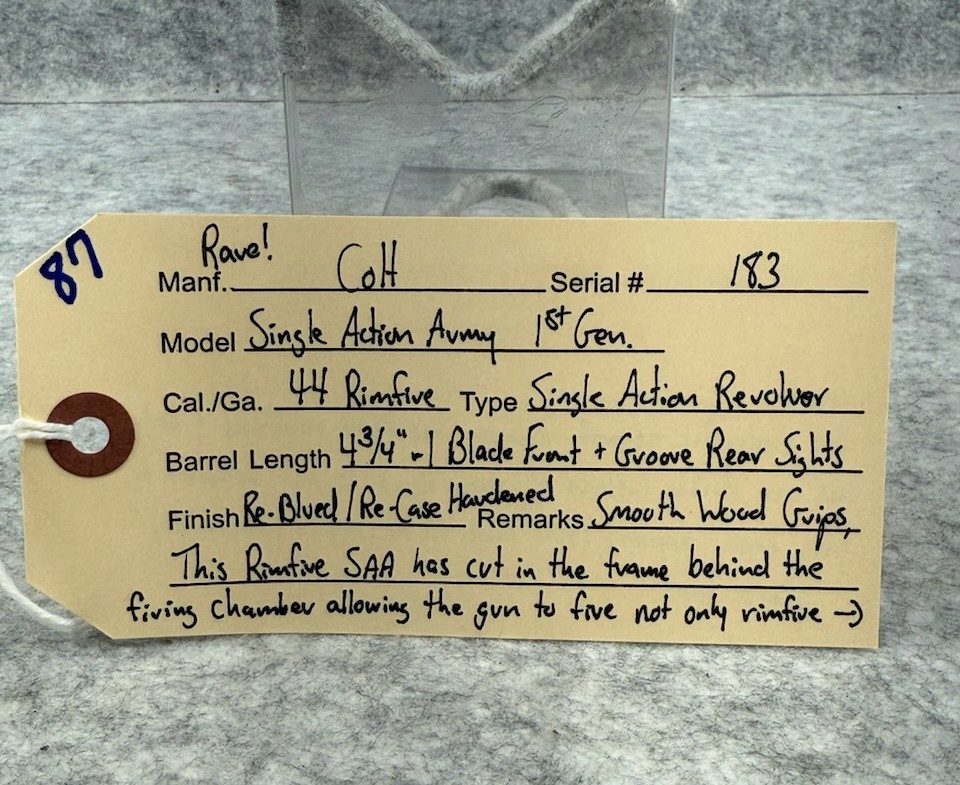 87
Rare!
Manf. Colt Serial # 183
Model Single Action Army 1st Gen.
Cal./Ga. 44 Rimfire Type Single Action Revolver
Barrel Length 4 3/4" w/ Blade Front + Groove Rear Sights
Finish Re-Blued / Re-Case Hardened Remarks Smooth Wood Grips,
This Rimfire SAA has cut in the frame behind the
firing chamber allowing the gun to fire not only rimfire →